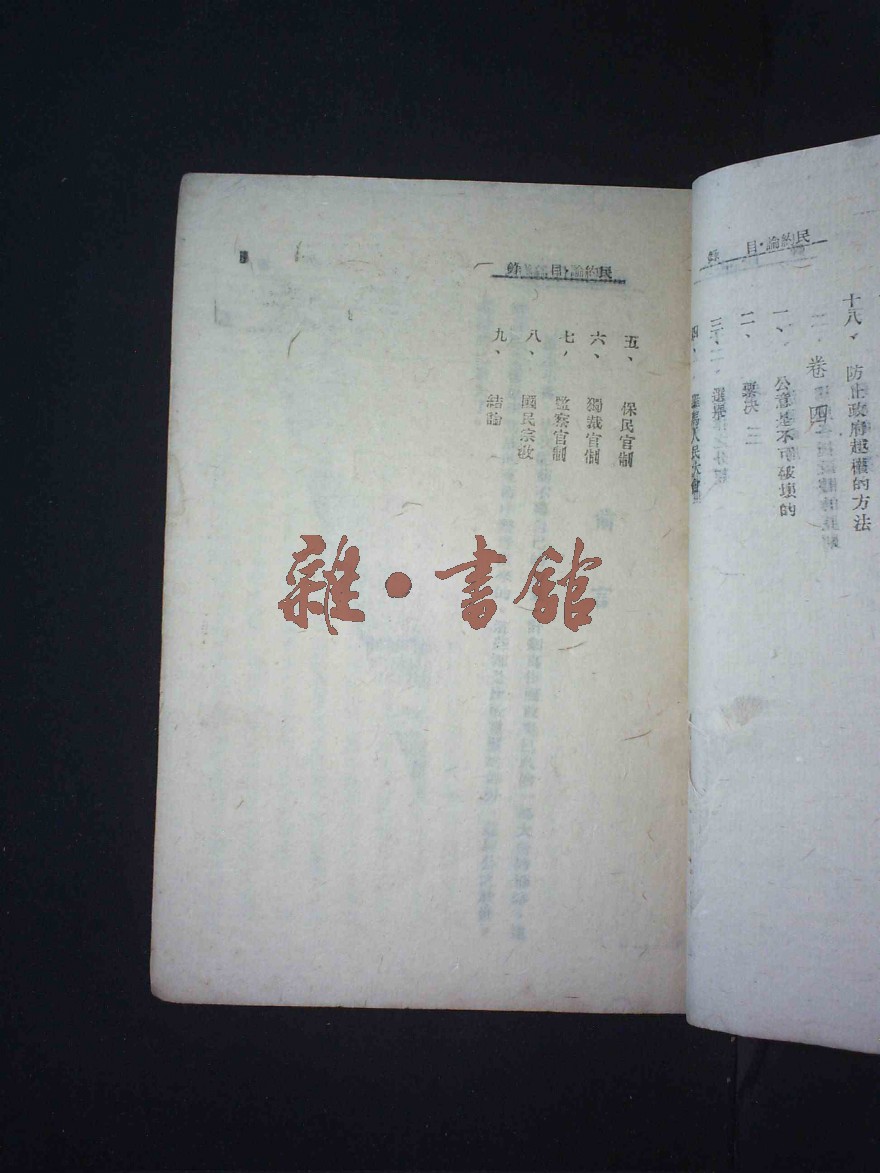 民約論·目錄
十八、防止政府越權的方法
卷四
一、公意是不可破壞的
二、票決
三、選舉
四、羅馬人民大會
民約論·目錄
五、保民官制
六、獨裁官制
七、監察官制
八、國民宗教
九、結論
雜·書館